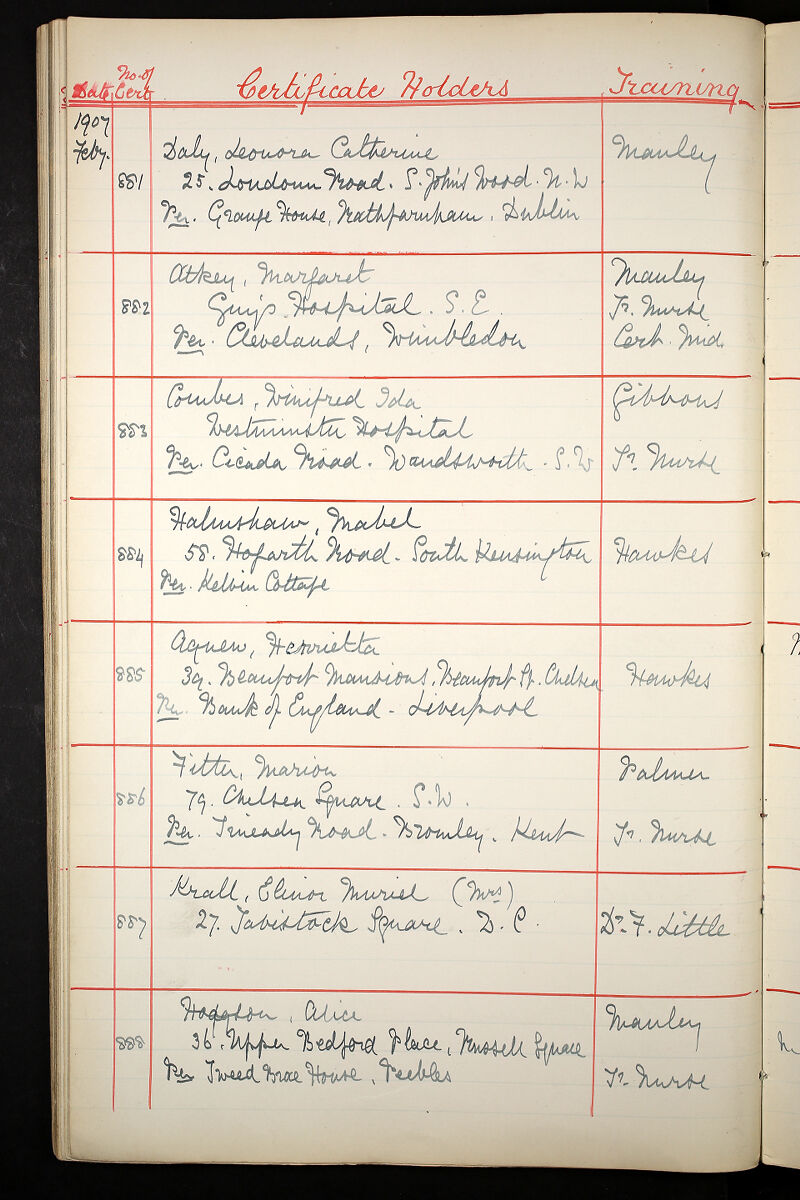 Date No. of Cert Certificate Holders Training
1907
Feby. Daly, Leonora Catherine Manley
881 25. Loudoun Road. S. John's Wood. N.W
Per. Grange House, Rathfarnham. Dublin
Atkey, Margaret Manley
882 Guy's Hospital. S.E. Tr. Nurse
Per. Clevelands, Wimbledon Cert. Mid.
Combes, Winifred Ida Gibbons
883 Westminster Hospital
Per. Cicada Road. Wandsworth. S.W Tr. Nurse
Halmshaw, Mabel
884 58. Hogarth Road. South Kensington Hawkes
Per. Kelvin Cottage
Agnew, Henrietta
885 39. Beaufort Mansions, Beaufort St. Chelsea Hawkes
Per. Bank of England - Liverpool
Fitter, Marion Palmer
886 79. Chelsea Square. S.W.
Per. Road. Bromley. Kent Tr. Nurse
Krall, Elinor Muriel (Mrs)
887 27. Tavistock Square. D. C. Dr. F. Little
Hodgson, Alice Manley
888 36. Upper Bedford Place, Russell Square
Per Tweed Brae House, Peebles Tr. Nurse